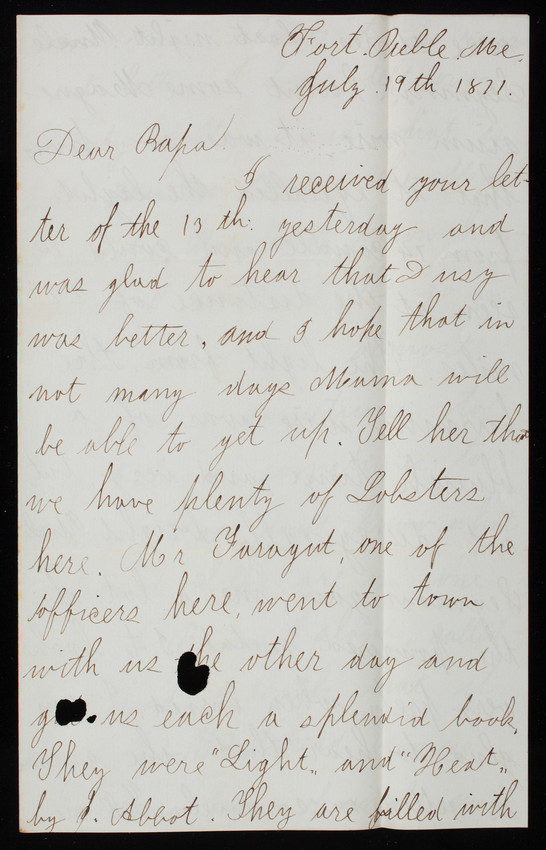 Fort. Preble. Me.
July. 19th 1871.
Dear Papa
I received your let-
ter of the 13th. yesterday and
was glad to hear that Dusy
was better, and I hope that in
not many days Mama will
be able to get up. Tell her tha
we have plenty of Lobsters
here. Mr Faragut, one of the
officers here, went to town
with us the other day and
us each a splendid book.
They were "Light„ and "Heat„
by J. Abbot. They are filled with